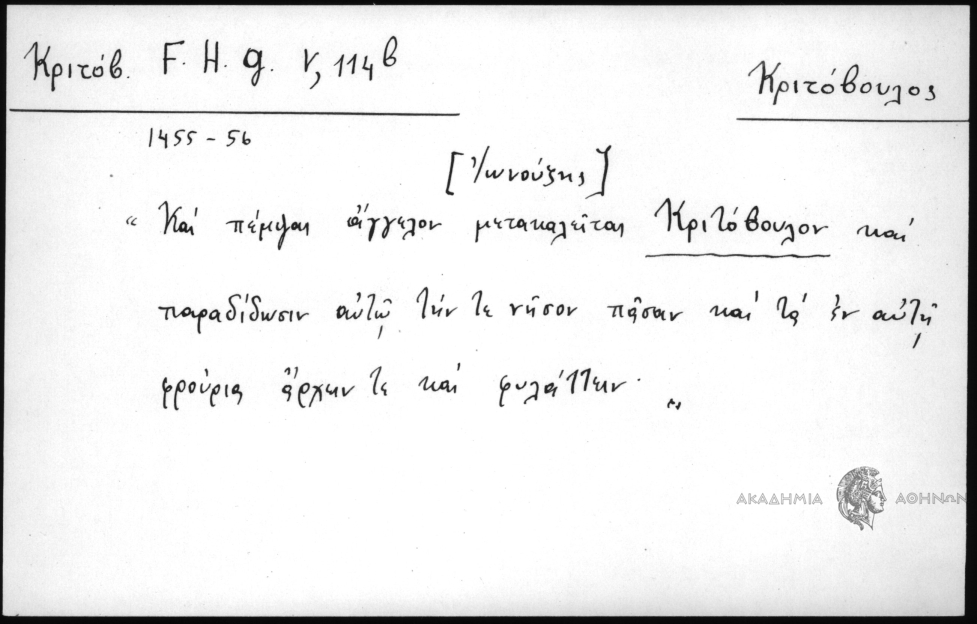 Κριτόβ. F. H. g. V, 114b
Κριτόβουλος
1455 - 56
[Ἰωνούζης]
“ Καὶ πέμψας ἄγγελον μετακαλεῖται Κριτόβουλον καὶ
παραδίδωσιν αὐτῷ τήν τε νῆσον πᾶσαν καὶ τὰ ἐν αὐτῇ
φρούρια ἄρχειν τε καὶ φυλάττειν· „
ΑΚΑΔΗΜΙΑ ΑΘΗΝΩΝ